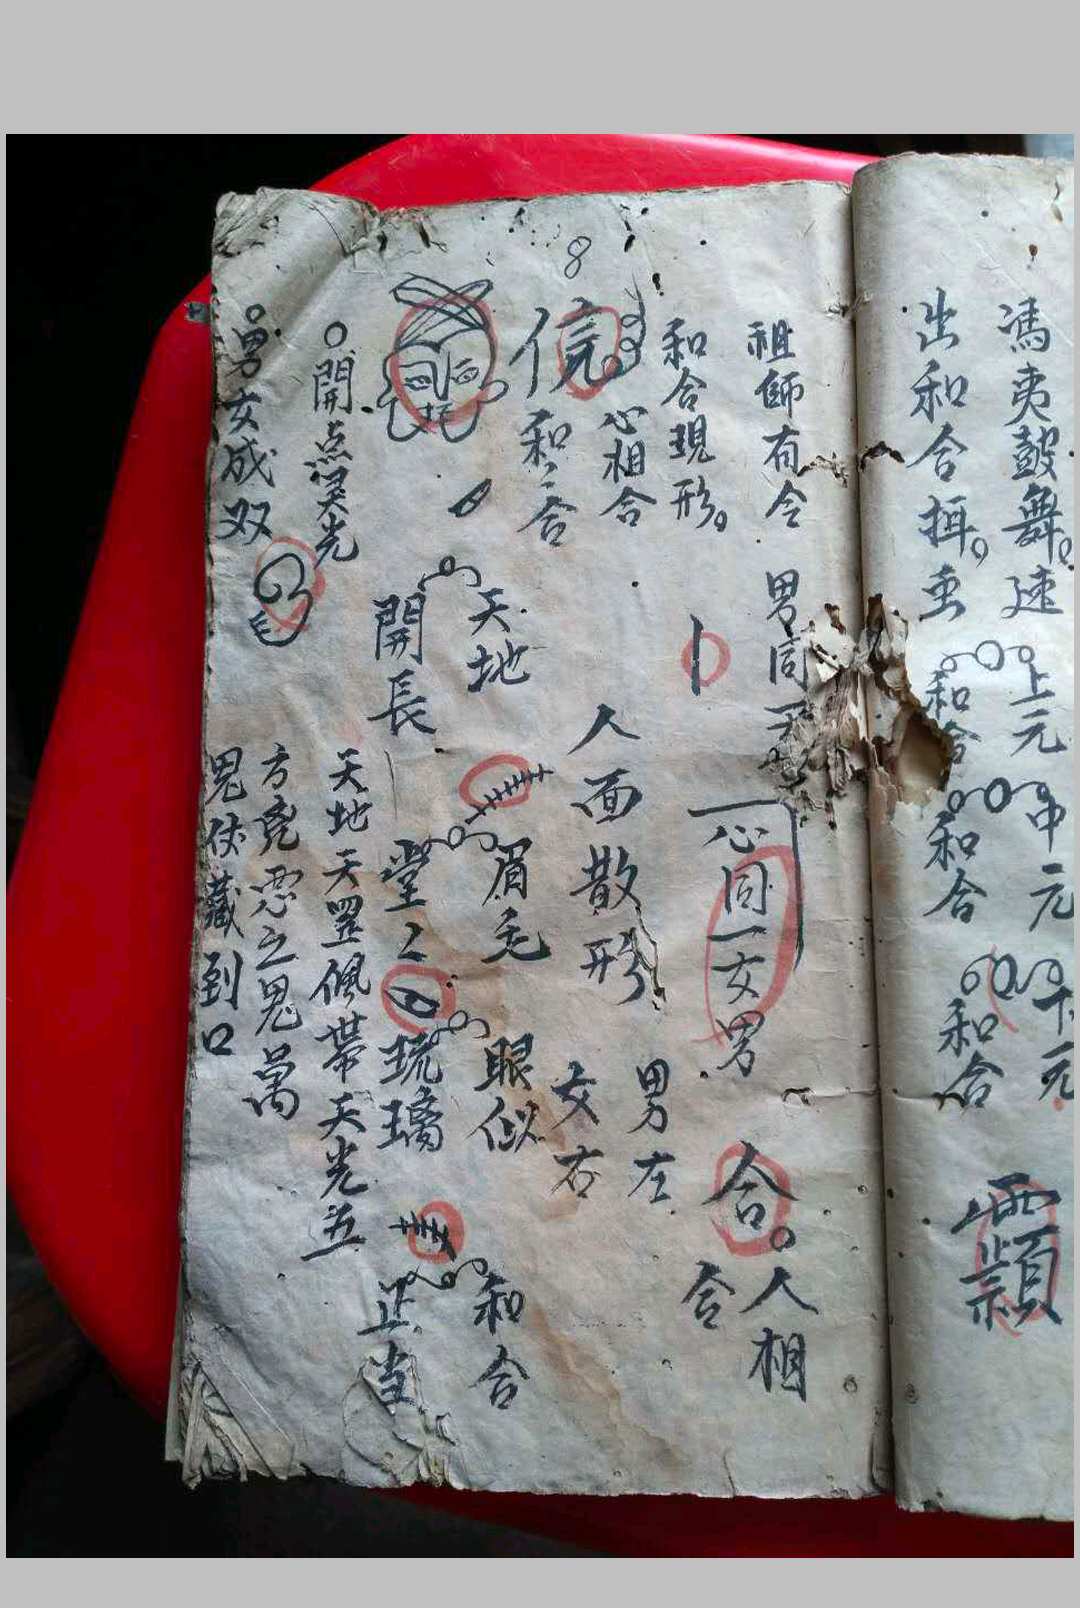 馮夷鼓舞 速 上元 中元 下元
出和合 和合 和合 和合
祖師有令 男同 合 人相
和合現形 一心同一女男 合
心相合 男左
信 和合 人面散形 女右
天地 眉毛 眼似 和合
開長 堂 琉璃 正当
開点灵光 天地天罡佩帶天光五
方 之鬼萬
男女成双 鬼 藏到口
8